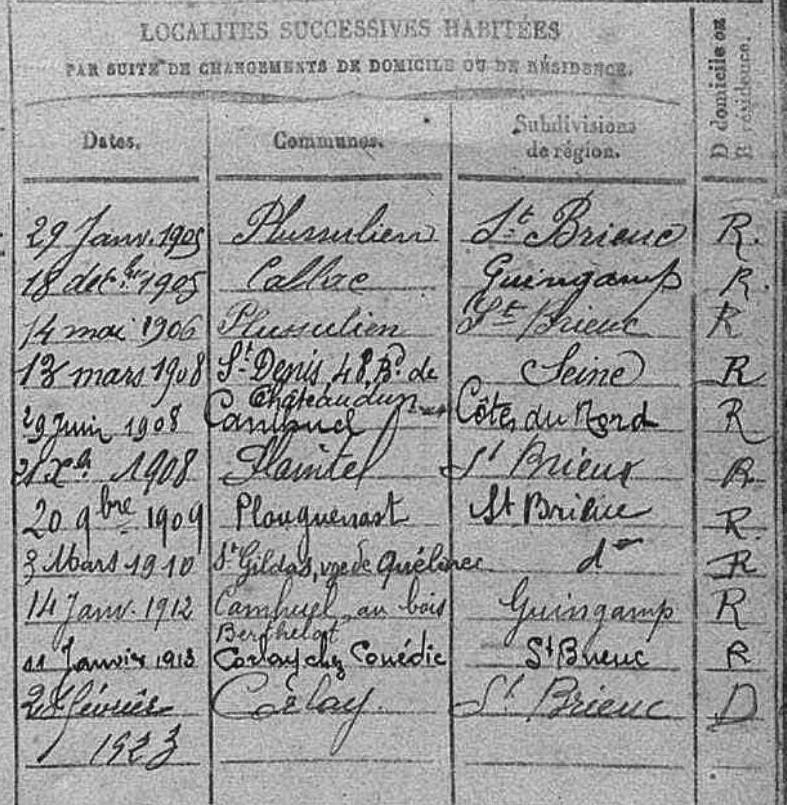 LOCALITÉS SUCCESSIVES HABITÉES
PAR SUITE DE CHANGEMENTS DE DOMICILE OU DE RÉSIDENCE.
D domicile ou
R résidence.
Dates. Communes. Subdivisions
de région.
29 Janv. 1905 Plussulien St Brieuc R.
18 1905 Callac Guingamp R.
14 mai 1906 Plussulien St Brieuc R
13 mars 1908 St Denis, 48, Bd. de Seine R
Châteaudun
29 Juin 1908 Côtes du Nord R
Xbre 1908 St Brieux R.
20 9bre 1909 Plouguenast St Brieuc R.
3 Mars 1910 St Gildas, de d° R
14 Janv. 1912 au bois Guingamp R
Berthelot
11 Janvier 1913 Corlay chez Couédic St Brieuc R
février Corlay. St Brieuc D
1923